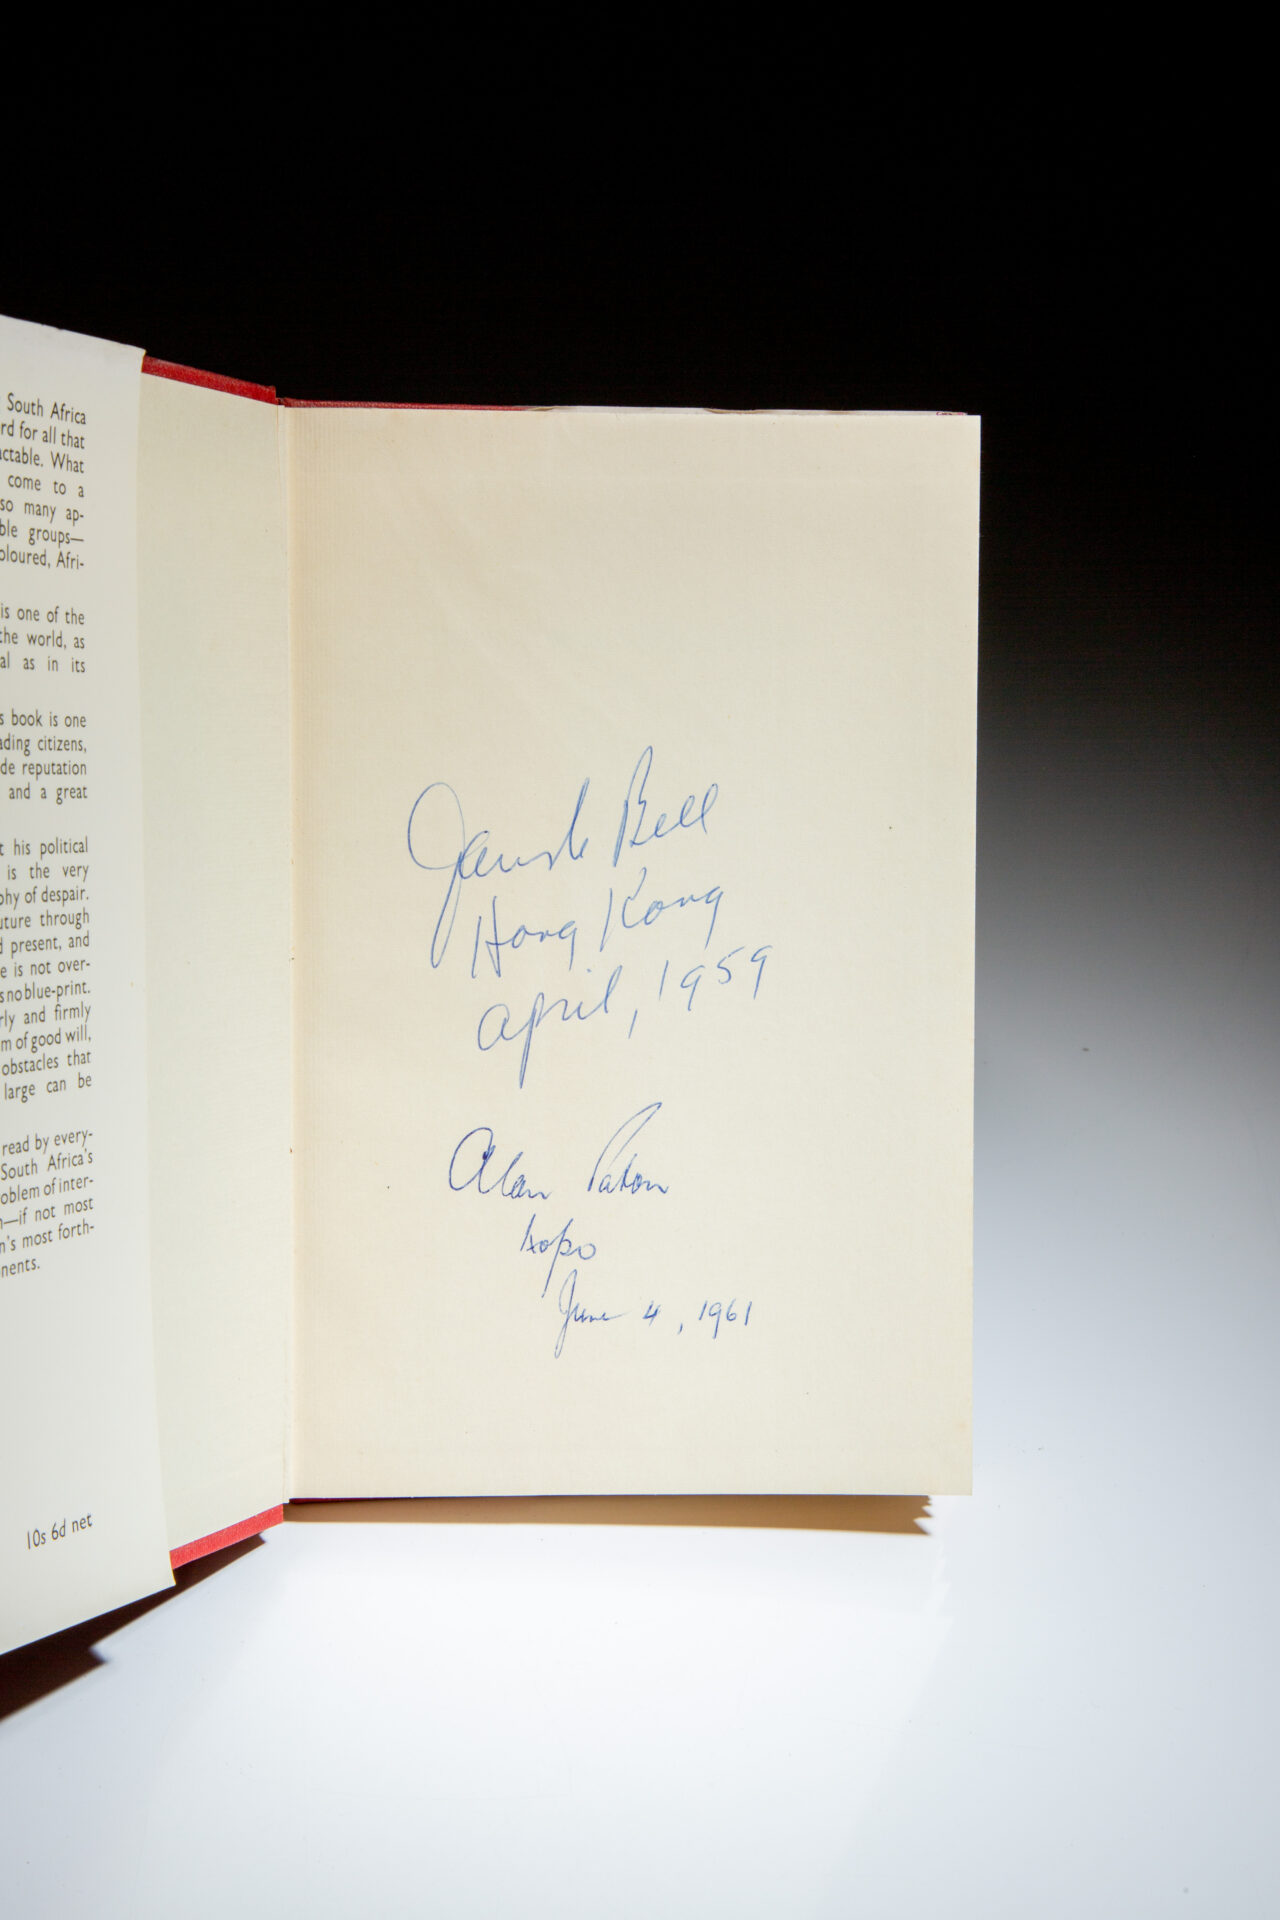 South Africa
rd for all that
actable. What
come to a
so many ap-
ble groups—
oloured, Afri-
is one of the
the world, as
al as in its
s book is one
ading citizens,
de reputation
and a great
t his political
is the very
phy of despair.
uture through
d present, and
e is not over-
s no blue-print.
rly and firmly
m of good will,
obstacles that
large can be
read by every-
South Africa's
oblem of inter-
n—if not most
n's most forth-
nents.
10s 6d net
Bell
Hong Kong
April, 1959
Alan Paton
June 4, 1961